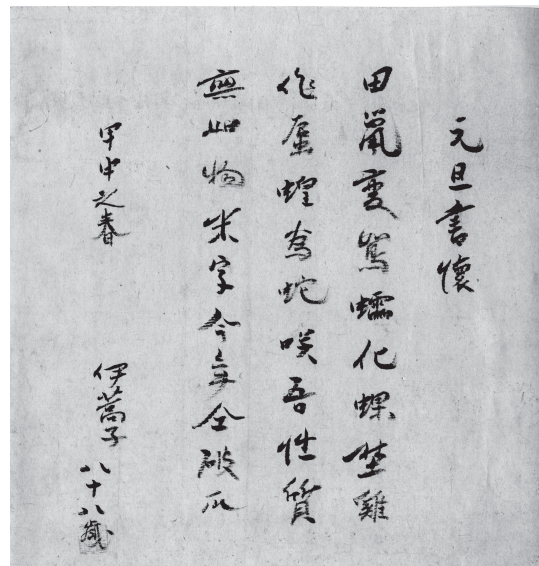 元旦書懷
田鼠変鴽蠕化蝶埜雞
作蜃蝗為蛇咲吾性質
無此物米字今年全破瓜
甲申之春
伊蒿子
八十八歳